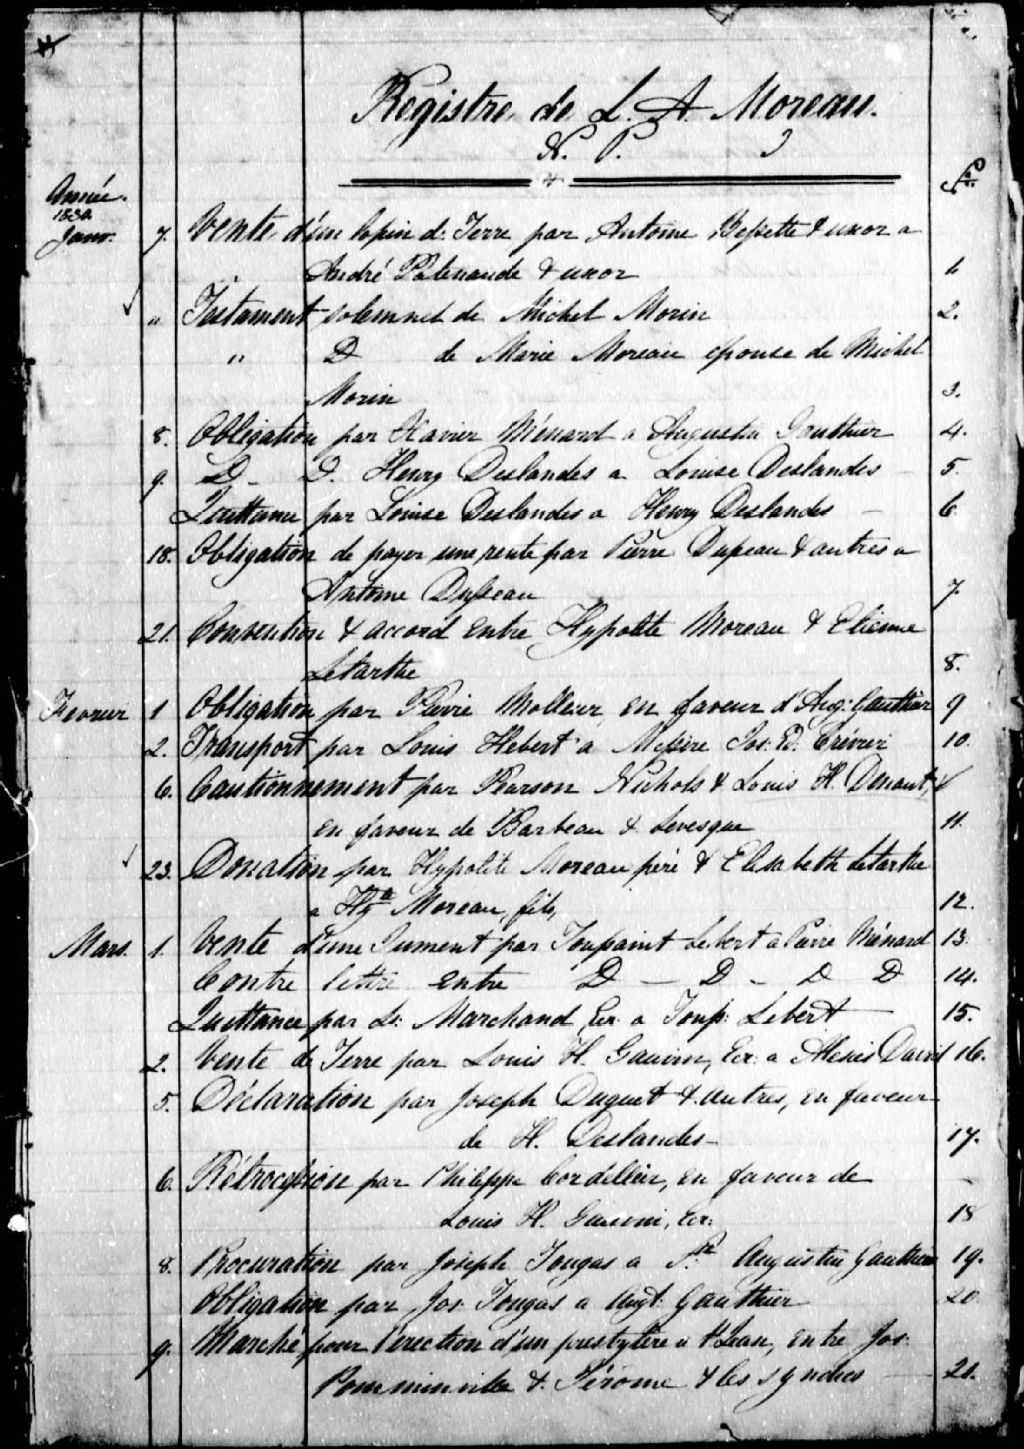 Registre de L. A. Moreau.
N. P.
No.
Année.
1832
Janv. 7. Vente d'un lopin de Terre par Antoine Bessette & uxor a
André Patenaude & uxor 1.
" Testament solemnel de Michel Morin 2.
" D de Marie Moreau epouse de Michel
Morin 3.
8. Obligation par Xavier Ménard a Augustin Gauthier 4.
9. D - D. Henry Deslandes a Louise Deslandes - 5.
Quittance par Louise Deslandes a Henry Deslandes - 6
18. Obligation de payer une rente par Pierre Dupeau & autres a
Antoine Dupeau 7.
21. Convention & accord entre Hypolite Moreau & Etienne
Letarthe 8.
Fevrier 1 Obligation par Pierre Molleur en faveur d'Aug: Gauthier 9
2. Transport par Louis Hebert a Messire Jos. Ed. Crévier 10.
6. Cautionnement par Pearson Nichols & Louis H. Denault,
en faveur de Barbeau & Levesque 11.
23. Donation par Hypolite Moreau père & Elisabeth Letarthe
a Hyte Moreau, fils, 12.
Mars. 1. Vente d'une Jument par Toussaint Lebert à Pierre Ménard 13.
Contre lettre entre D - D - D D 14.
Quittance par Ls: Marchand, Ecr. a Toup: Lebert - 15.
2. Vente de Terre par Louis H. Gauvin, Ecr. a Alexis David 16.
5. Déclaration par Joseph Duquet & autres, en faveur
de H. Deslandes - 17.
6. Rétrocession par Philippe Cordellier, en faveur de
Louis H. Gauvin, Ecr. 18
8. Procuration par Joseph Tougas a Augustin Gauthier 19.
Obligation par Jos. Tougas a Augt. Gauthier 20
9. Marché pour l'erection d'un presbytère a St. Jean, entre Jos:
Pomminville & Jérome & les syndics - 21.